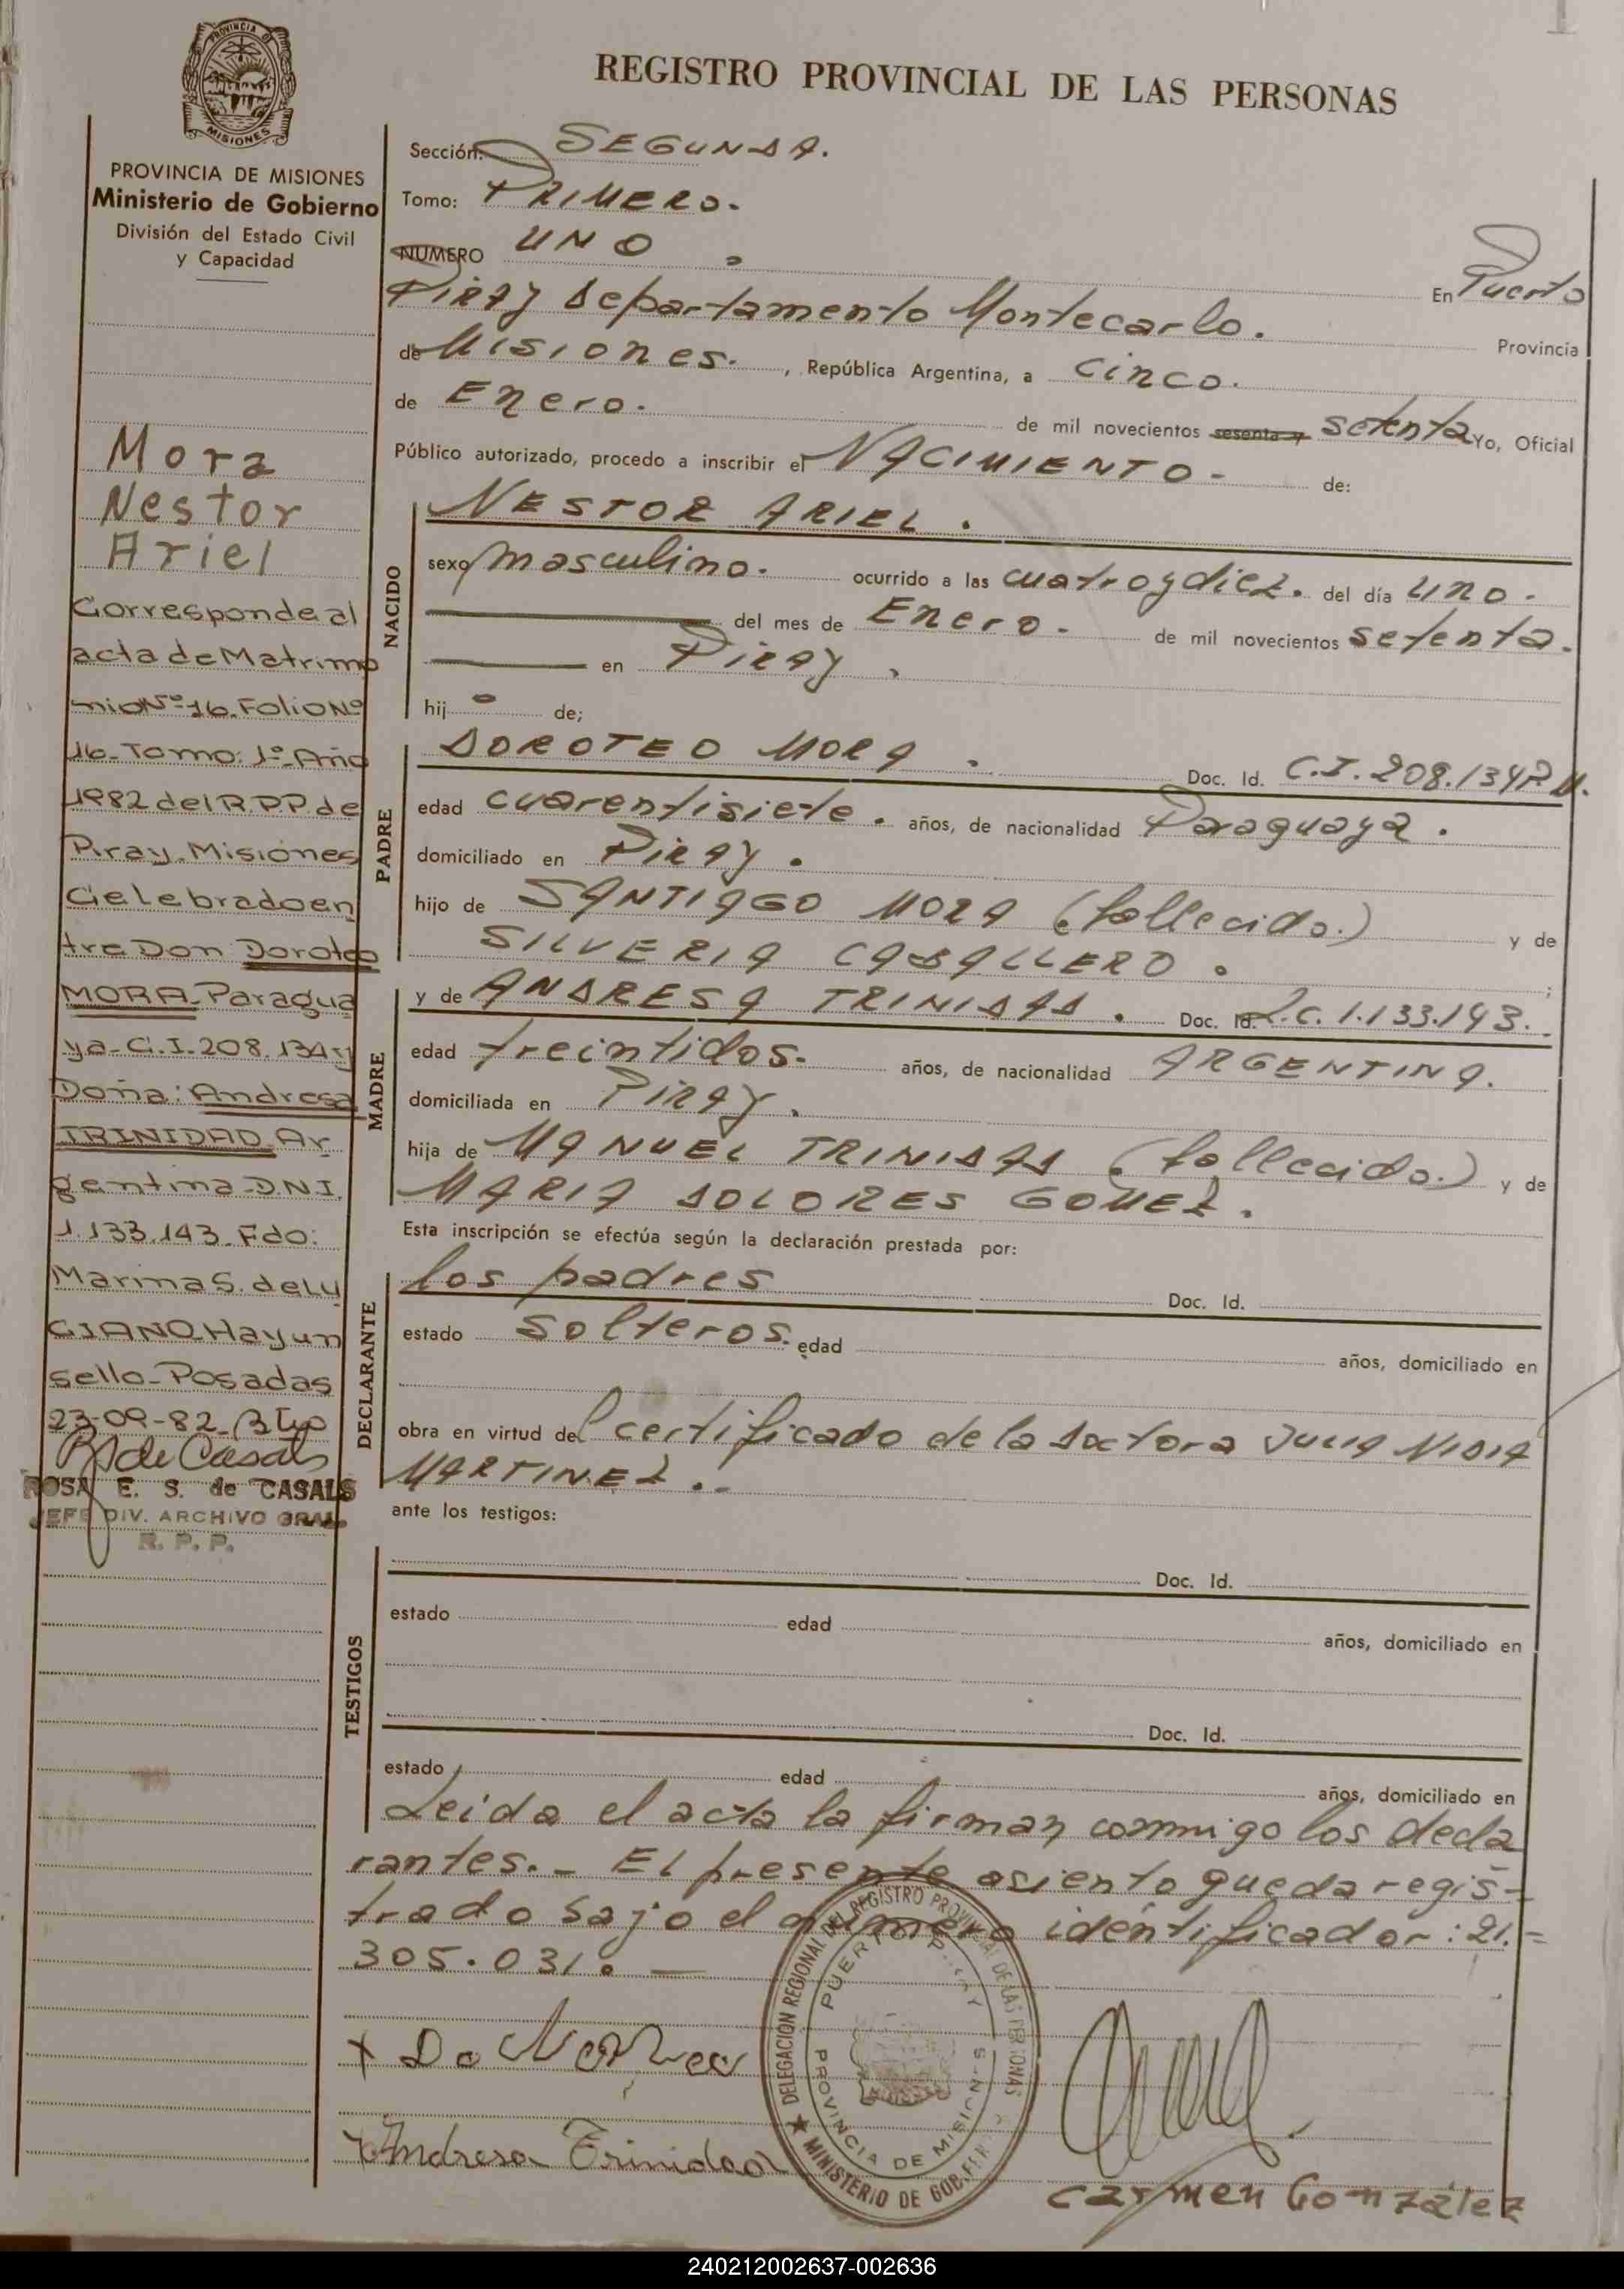 REGISTRO PROVINCIAL DE LAS PERSONAS
PROVINCIA DE MISIONES
Ministerio de Gobierno
División del Estado Civil
y Capacidad
Mora
Nestor
Ariel
Corresponde al
acta de Matrimo
nio Nº 16. Folio Nº
16. Tomo: 1º Año
1982 del R.P.P. de
Piray. Misiones
Celebrado en
tre Don Doroteo
MORA. Paragua
ya. C.I. 208.134 y
Doña: Andresa
TRINIDAD. Ar
gentina. D.N.I.
1.133.143. Fdo:
Marina S. de LU
CIANO. Hay un
sello. Posadas
23-09-82.
R S de Casals
ROSA E. S. de CASALS
JEFE DIV. ARCHIVO GRAL.
R. P. P.
Sección: SEGUNDA.
Tomo: PRIMERO.
NUMERO UNO.
En Puerto
PIRAY Departamento Montecarlo. Provincia
de Misiones. , República Argentina, a cinco.
de Enero. de mil novecientos sesenta y setenta Yo, Oficial
Público autorizado, procedo a inscribir el NACIMIENTO - de:
NACIDO
NESTOR ARIEL.
sexo masculino. ocurrido a las cuatro y diez. del día uno.
del mes de Enero. de mil novecientos setenta.
en Piray.
hij o de;
PADRE
DOROTEO MORA. Doc. Id. C.I. 208.134
edad cuarentisiete. años, de nacionalidad Paraguaya.
domiciliado en Piray.
hijo de SANTIAGO MORA (fallecido.) y de
SILVERIA CABALLERO. ;
MADRE
y de ANDRESA TRINIDAD. Doc. Id. L.C. 1.133.143.
edad treintidos. años, de nacionalidad ARGENTINA.
domiciliada en Piray.
hija de MANUEL TRINIDAD (fallecido.) y de
MARIA DOLORES GOMEZ.
Esta inscripción se efectúa según la declaración prestada por:
DECLARANTE
los padres Doc. Id.
estado solteros. edad años, domiciliado en
obra en virtud del certificado de la doctora JULIA NIDIA
MARTINEZ.
ante los testigos:
TESTIGOS
Doc. Id.
estado edad años, domiciliado en
Doc. Id.
estado edad años, domiciliado en
Leida el acta la firman conmigo los decla
rantes. - El presente asiento queda regis-
trado bajo el número identificador: 21.=
305.031. —
Andresa Trinidad
DELEGACIÓN REGIONAL DEL REGISTRO PROVINCIAL DE LAS PERSONAS
PUERTO PIRAY
PROVINCIA DE MISIONES
MINISTERIO DE GOBIERNO
Carmen González
240212002637-002636